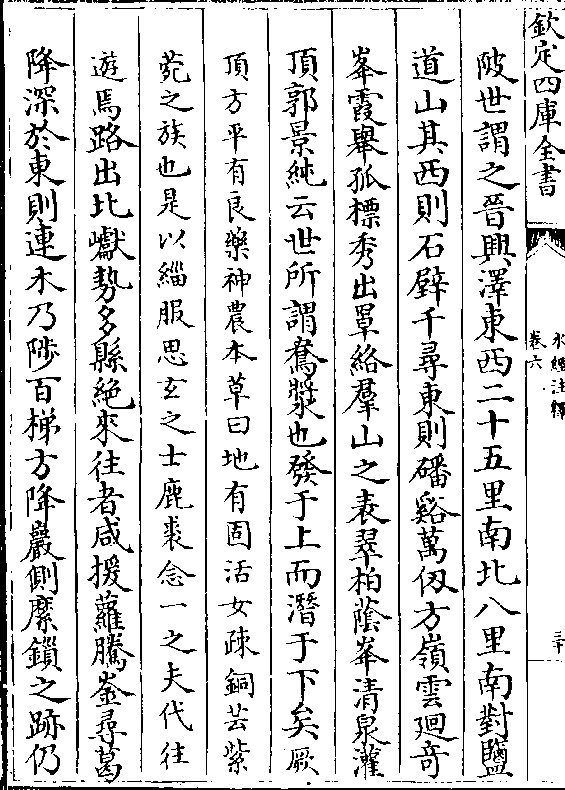 欽定四庫全書
水經注釋
卷六
三十
陂世謂之晉興澤東西二十五里南北八里南對鹽
道山其西則石壁千尋東則磻谿萬仞方嶺雲廻奇
峯霞舉孤標秀出罩絡羣山之表翠柏蔭峯清泉灌
頂郭景純云世所謂鴦漿也發于上而潛于下矣厥
頂方平有良藥神農本草曰地有固活女疎銅芸紫
菀之族也是以緇服思玄之士鹿裘念一之夫代往
遊焉路出北巘勢多縣絕來往者咸援蘿騰崟尋葛
降深於東則連木乃陟百梯方降巖側縻鎖之跡仍